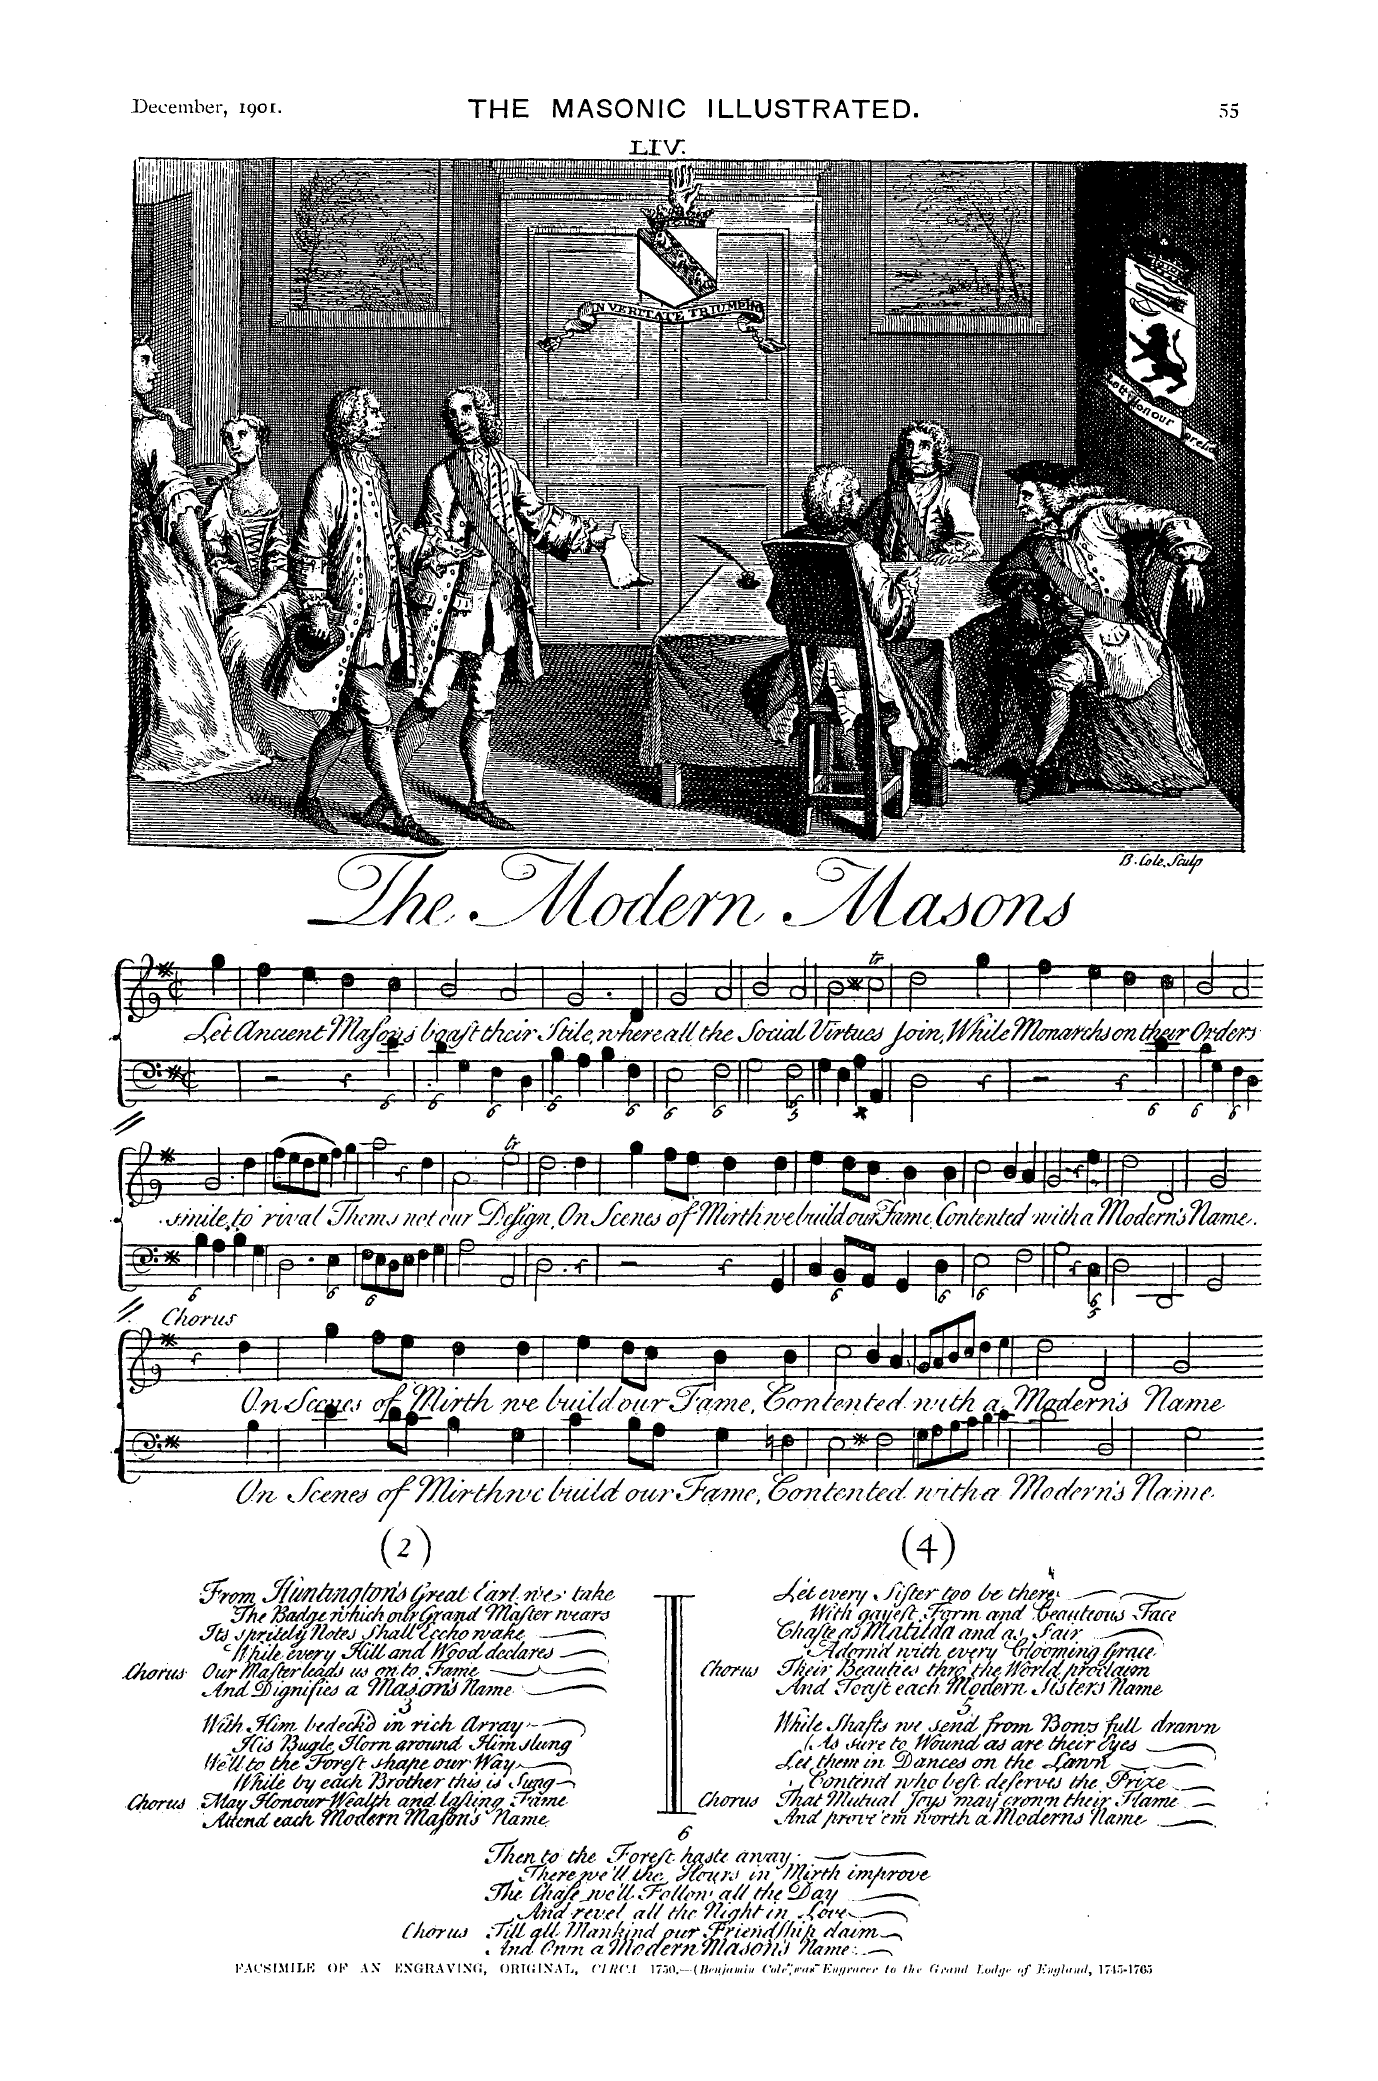 December, 1901.
THE MASONIC ILLUSTRATED.
55
LIV.
IN VERITATE TRIUMPHO
Lett Honour
B. Cole, Sculp
The Modern Masons
tr
Let Ancient Maſons boaſt their Stile, where all the Social Virtues Join, While Monarchs on their Orders
6 6 6 6 6 6 6 6 5 6 6 6
tr
smile, to rival Thems not our Deſign, On Scenes of Mirth we build our Fame, Contented with a Modern's Name.
6 6 6 6 6 6 6 5
Chorus
On Scenes of Mirth we build our Fame, Contented with a Modern's Name
On Scenes of Mirth we build our Fame, Contented with a Modern's Name.
(2)
From Huntington's Great Earl we take
The Badge which our Grand Maſter wears
Its spritely Notes Shall Eccho wake
While every Hill and Wood declares
Chorus Our Maſter leads us on to Fame
And Dignifies a Mason's Name
3
With Him bedeck'd in rich Array
His Bugle Horn around Him slung
We'll to the Foreſt shape our Way
While by each Brother this is Sung
Chorus May Honour Wealth and laſting Fame
Attend each Modern Maſon's Name
(4)
Let every Siſter too be there
With gayeſt Form and Beauteous Face
Chaſte as Matilda and as Fair
Adorn'd with every Blooming Grace
Chorus Their Beauties thro the World proclaim
And Toaſt each Modern Sisters Name
5
While Shafts we send from Bows full drawn
(As sure to Wound as are their Eyes
Let them in Dances on the Lawn
Contend who beſt deſerves the Prize
Chorus That Mutual Joys may crown their Flame
And prove 'em worth a Moderns Name
6
Then to the Foreſt haste away
There we'll the Hours in Mirth improve
The Chaſe we'll Follow all the Day
And revel all the Night in Love
Chorus Till all Mankind our Friendſhip claim
And Own a Modern Mason's Name
FACSIMILE OF AN ENGRAVING, ORIGINAL, CIRCA 1750.—(Benjamin Cole, was Engraver to the Grand Lodge of England, 1745-1765